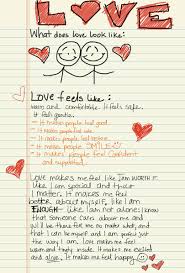 LOVE
What does love look like:
Love feels like:
warm and comfortable. It feels safe.
It feels gentle.
- It makes people feel good.
- It makes people feel
- It makes people
- It makes people SMILE
- It makes people feel confident
and supported.
Love makes me feel like I am WORTH IT
like I am special and that
I matter. It makes me feel
better about myself, like I am
ENOUGH - like I am not alone; know
that someone cares about me and
will be there for me no matter what, and
that I can be myself and I am perfect just
the way I am. Love makes me feel
warm and inside. It makes me excited
and alive. It makes me feel happy